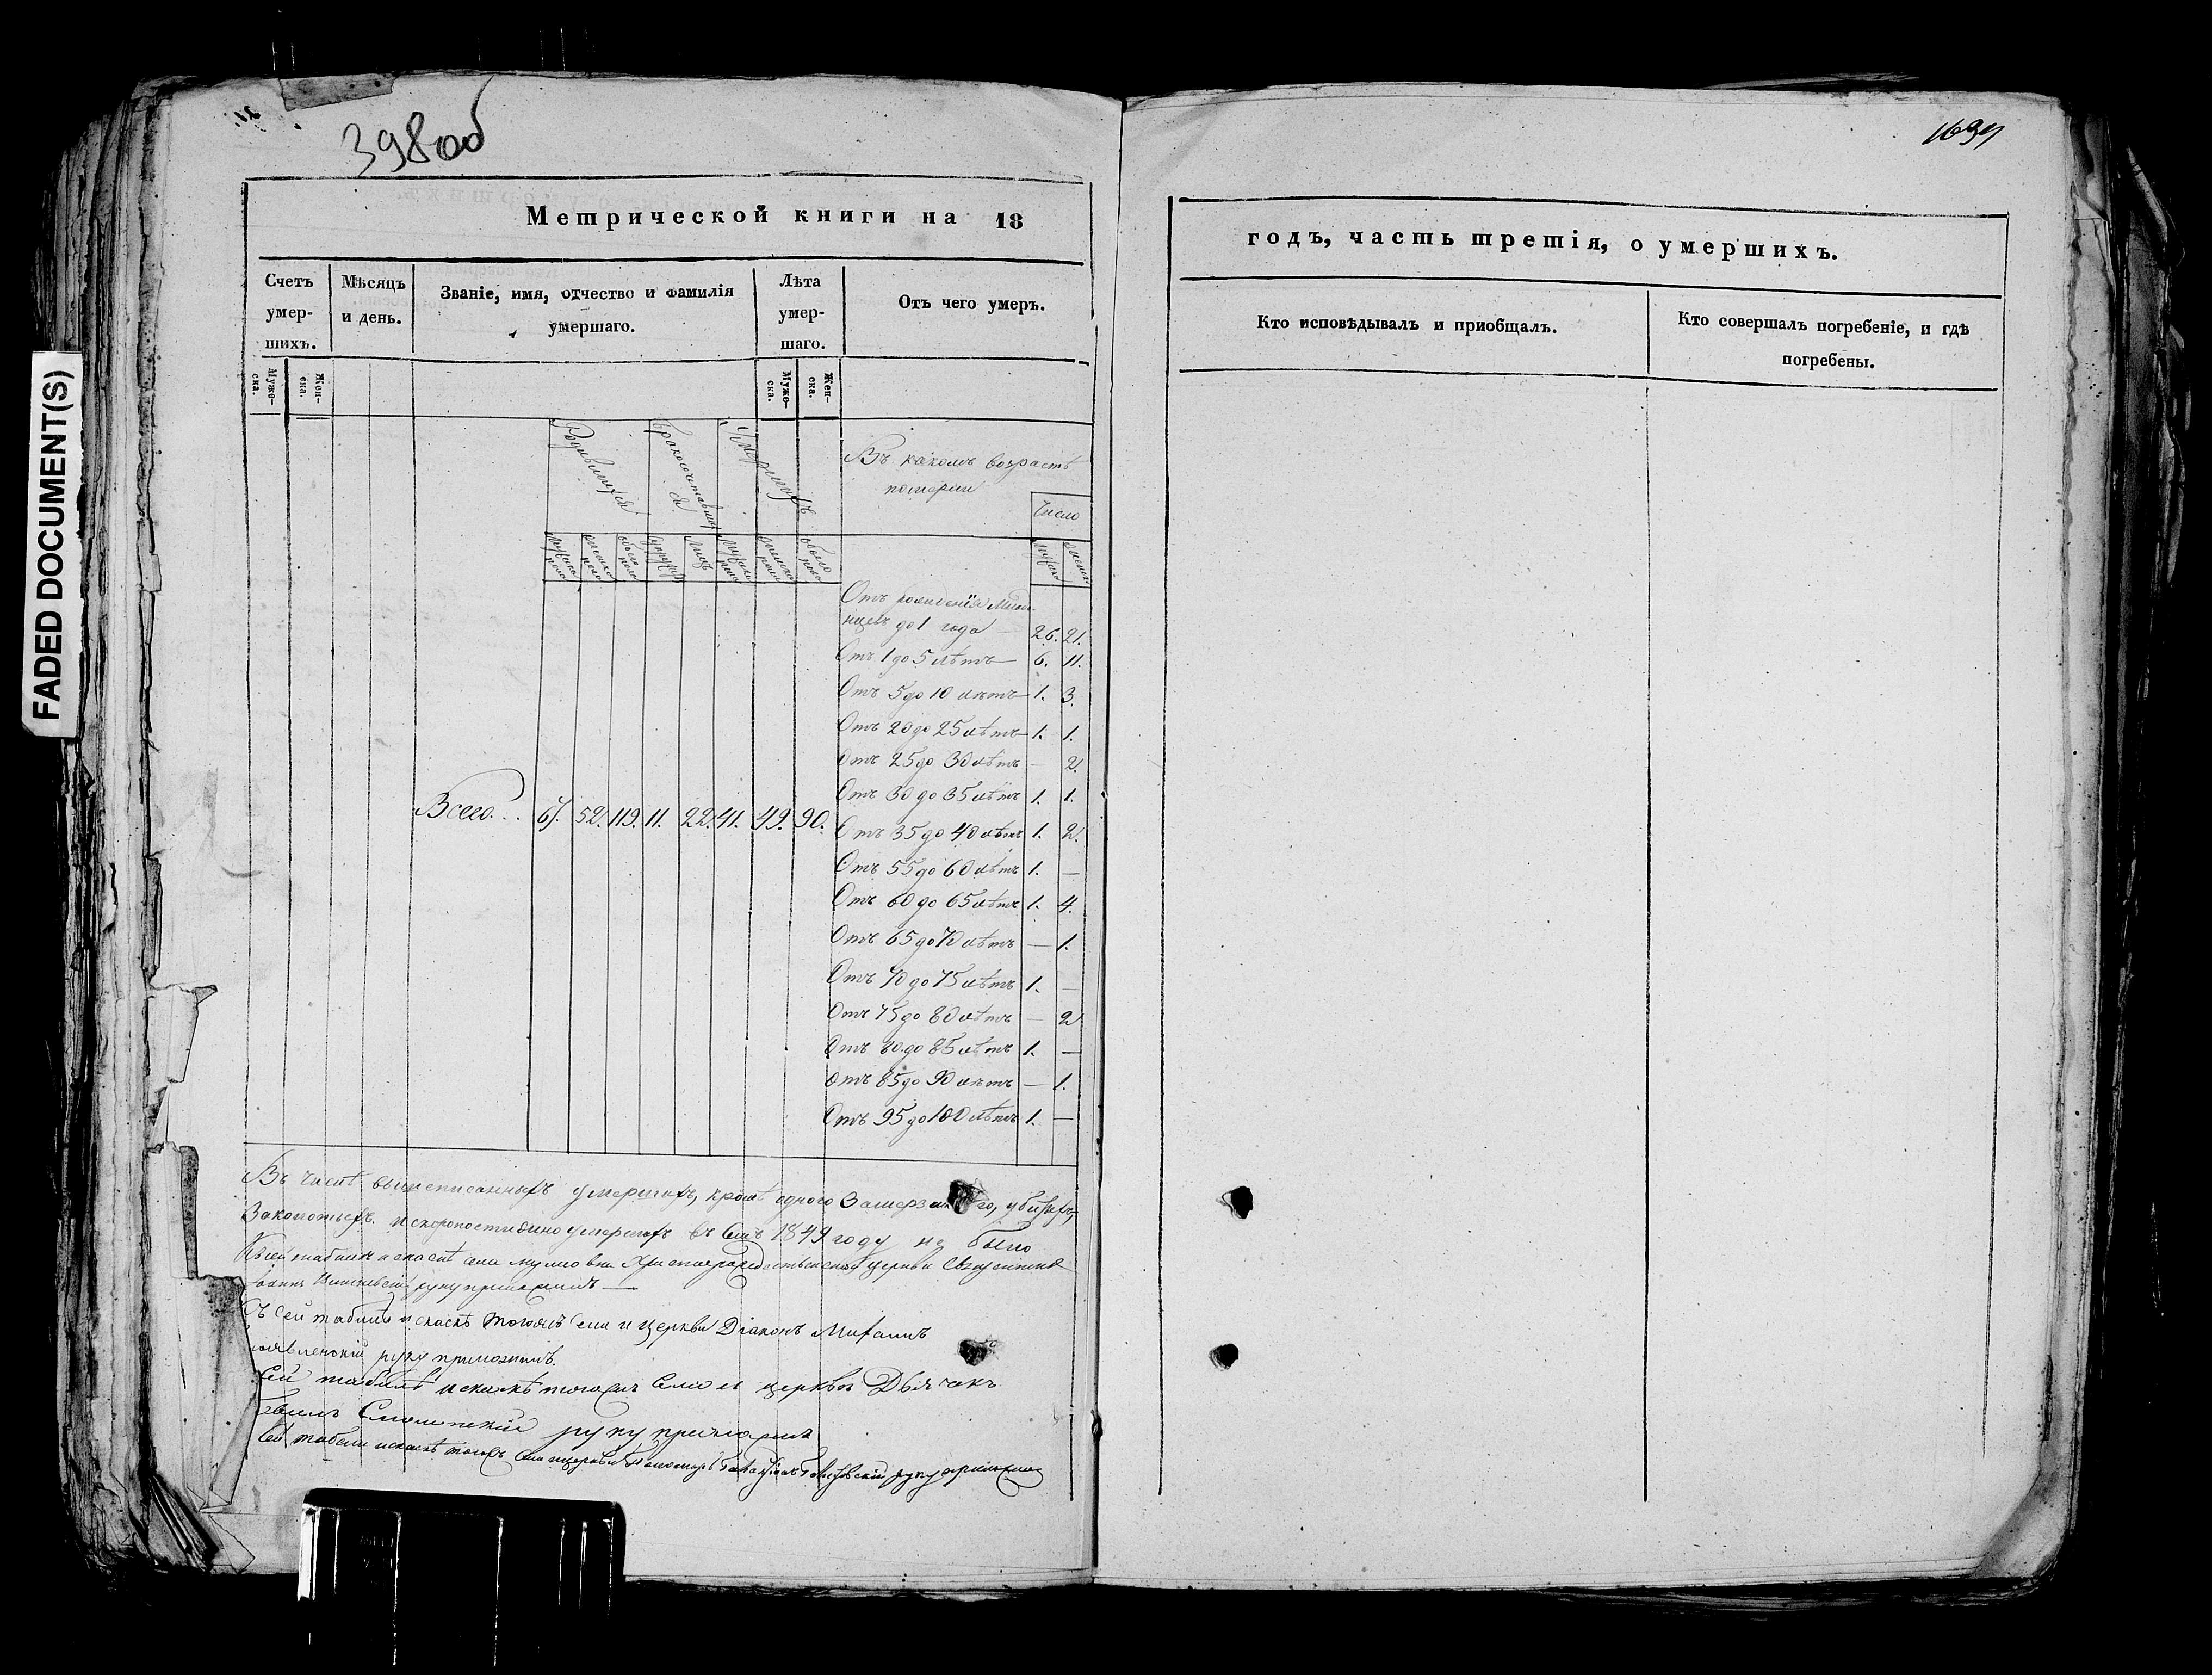 398об
1697
FADED DOCUMENT(S)
Метрической книги на 18
годъ, часть третія, о умершихъ.
Счетъ умер-
шихъ.
Мѣсяцъ
и день.
Званіе, имя, отчество и фамилія
умершаго.
Лѣта
умер-
шаго.
Отъ чего умеръ.
Кто исповѣдывалъ и приобщалъ.
Кто совершалъ погребеніе, и гдѣ
погребены.
Муже-
ска.
Жен-
ска.
Муже-
ска.
Жен-
ска.
Родившихся
Бракосочетавших
ся
Умершихъ
Въ какомъ возрастѣ
померли
Число
Отъ рожденія Младе
нцевъ до 1 года 26. 21.
Отъ 1 до 5 лѣтъ 6. 11.
Отъ 5 до 10 лѣтъ 1. 3.
Отъ 20 до 25 лѣтъ 1. 1.
Отъ 25 до 30 лѣтъ — 2.
Отъ 30 до 35 лѣтъ 1. 1.
Всего. 67. 52. 119. 11. 22. 41. 49. 90.
Отъ 35 до 40 лѣтъ 1. 2.
Отъ 55 до 60 лѣтъ 1. —
Отъ 60 до 65 лѣтъ 1. 4.
Отъ 65 до 70 лѣтъ — 1.
Отъ 70 до 75 лѣтъ 1. —
Отъ 75 до 80 лѣтъ — 2
Отъ 80 до 85 лѣтъ 1. —
Отъ 85 до 90 лѣтъ — 1.
Отъ 95 до 100 лѣтъ 1. —
Въ числѣ вышеписанныхъ умершихъ, кромѣ одного Замерзшаго, убитыхъ,
и скоропостижно умершихъ въ семъ 1849 году не было
церкви Священникъ
руку приложилъ —
сей табели и сказкѣ тогожъ села и церкви Діаконъ Михаилъ
руку приложилъ.
сей табелѣ и сказкѣ тогожъ Села и церкви Дьячокъ
руку приложилъ
сей табели и сказкѣ тогожъ села и церкви Пономарь руку приложилъ